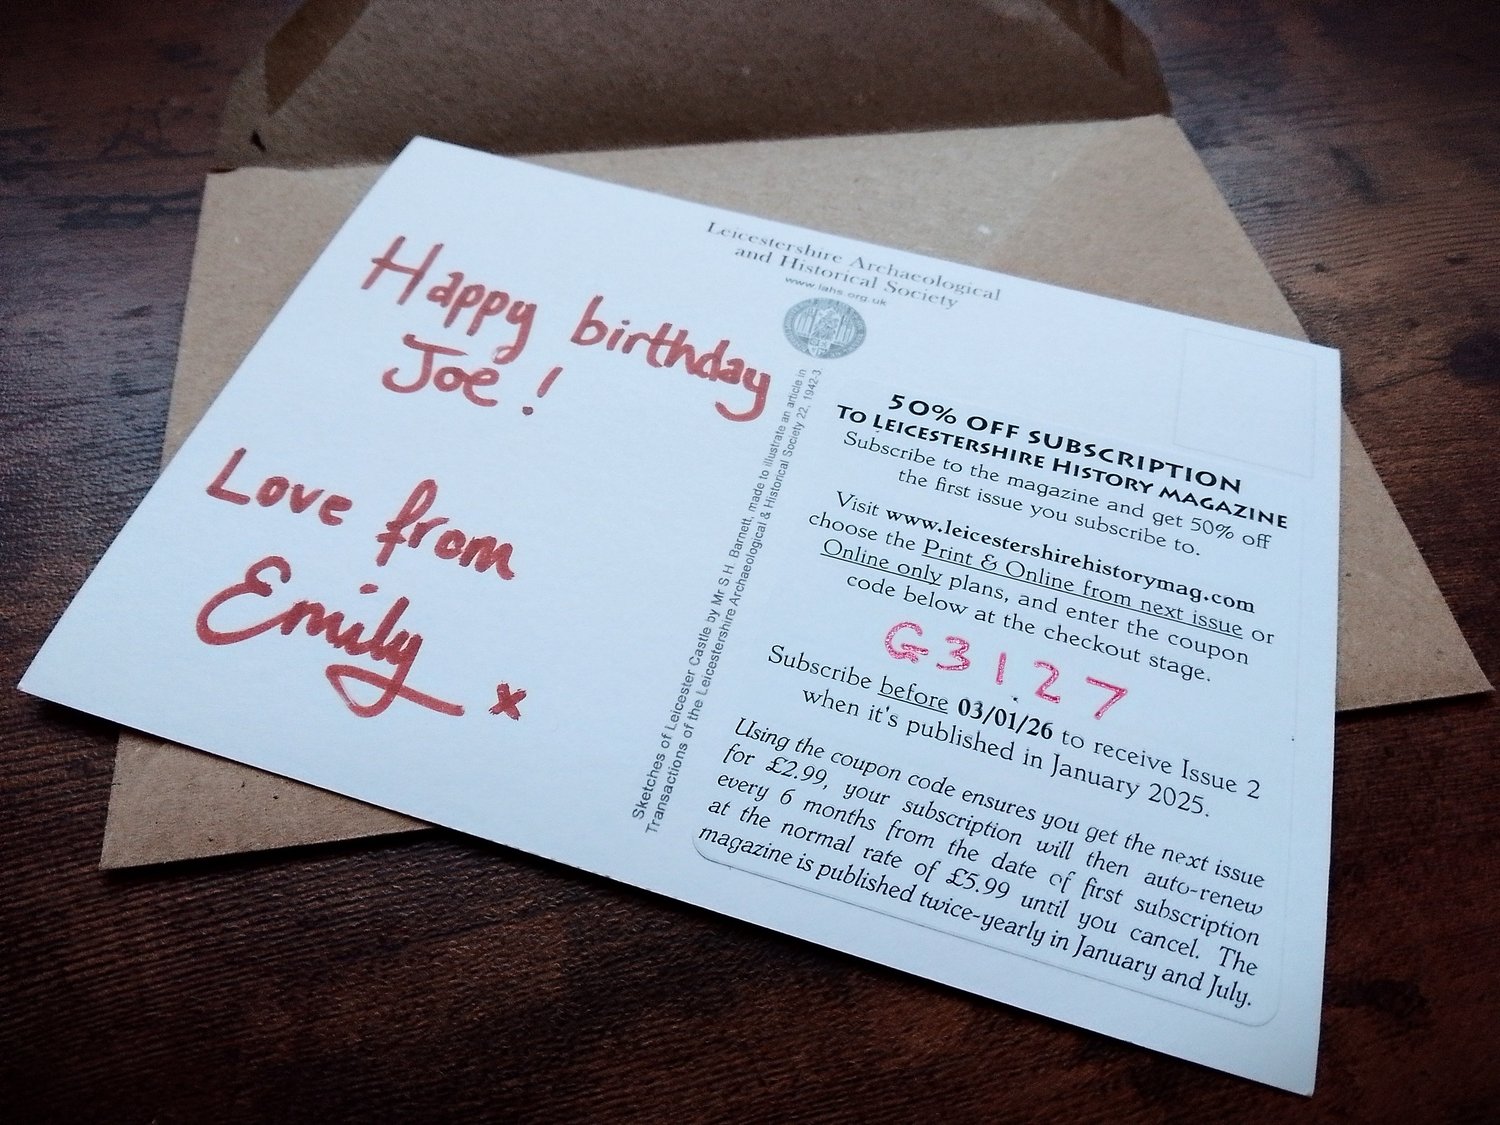 Happy birthday
Joe!
Love from
Emily x
Leicestershire Archaeological
and Historical Society
www.lahs.org.uk
Sketches of Leicester Castle by Mr S.H. Barnett, made to illustrate an article in
Transactions of the Leicestershire Archaeological & Historical Society 22, 1942-3
50% OFF SUBSCRIPTION
TO LEICESTERSHIRE HISTORY MAGAZINE
Subscribe to the magazine and get 50% off
the first issue you subscribe to.
Visit www.leicestershirehistorymag.com
choose the Print & Online from next issue or
Online only plans, and enter the coupon
code below at the checkout stage.
G3127
Subscribe before 03/01/26 to receive Issue 2
when it's published in January 2025.
Using the coupon code ensures you get the next issue
for £2.99, your subscription will then auto-renew
every 6 months from the date of first subscription
at the normal rate of £5.99 until you cancel. The
magazine is published twice-yearly in January and July.